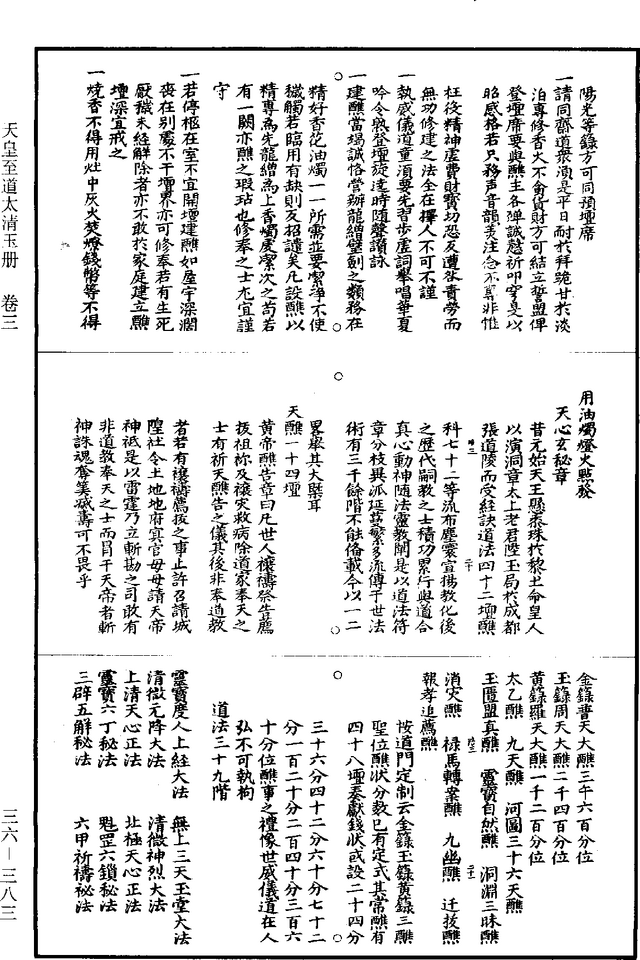 天皇至道太清玉册　卷三
三六—三八三
陽光等錄方可同預壇席
一請同齋道衆須是平日耐於拜跪甘於淡
泊專修香火不貪貨財方可結立誓盟俾
登壇席要與醮主各殫誠懇祈叩穹旻以
昭感格若只務聲音韻美注念不專非惟
枉役精神虛費財寶切恐反遭咎責勞而
無功修建之法全在擇人不可不謹
一執威儀道童須要先習步虛詞舉唱華夏
吟令熟登壇旋遶時隨聲讚詠
一建醮當竭誠恪營辦龍繒璧劄之類務在
精好香花油燭一一所需並要潔淨不使
穢觸若臨用有缺則反招譴矣凡設醮以
精專為先龍繒為上香燭處潔次之苟若
有一闕亦醮之瑕玷也修奉之士尤宜謹
守
一若停柩在室不宜開壇建醮如屋宇深闊
喪在別處不干壇界亦可修奉若有生死
厭穢未經解除者亦不敢於家庭建立醮
壇深宜戒之
一燒香不得用灶中灰火焚燈錢幣等不得
用油燭燈火點發
天心玄秘章
昔元始天王懸泰珠於黎土命皇人
以演洞章太上老君陞玉局於成都
張道陵而受經訣道法四十二壇醮
科七十二等流布塵寰宣揚教化後
之歷代嗣教之士積功累行與道合
真心動神隨法靈教闡是以道法符
章分枝異派延蓺繁多流傳于世法
術有三千餘階不能偹載今以一二
畧舉其大槩耳
天醮一十四壇
黄帝醮告章曰凡世人禳禱祭告薦
拔祖祢及禳灾救病除道家奉天之
士有祈天醮告之儀其後非奉道教
者若有禳禱薦拔之事止許召請城
隍社令土地地府真官毋毋請天帝
神祇是以雷霆乃立斬勘之司敢有
非道教奉天之士而冐干天帝者斬
神誅魂奪筭減壽可不畏乎
金錄普天大醮三千六百分位
玉錄周天大醮二千四百分位
黄錄羅天大醮一千二百分位
太乙醮　九天醮　河圖三十六天醮
玉匱盟真醮　靈寶自然醮　洞淵三昧醮
消灾醮　禄馬轉案醮　九幽醮　迁拔醮
報孝追薦醮
按道門定制云金錄玉錄黄錄三醮
聖位醮狀分数已有定式其常醮有
四十八壇奏獻錢狀或設二十四分
三十六分四十二分六十分七十二
分一百二十分二百四十分三百六
十分位醮事之禮像世威儀道在人
弘不可執拘
道法三十九階
靈寶度人上經大法　無上三天玉堂大法
清微元降大法　清微神烈大法
上清天心正法　北極天心正法
靈寶六丁秘法　魁罡六鎖秘法
三辟五解秘法　六甲祈禱秘法